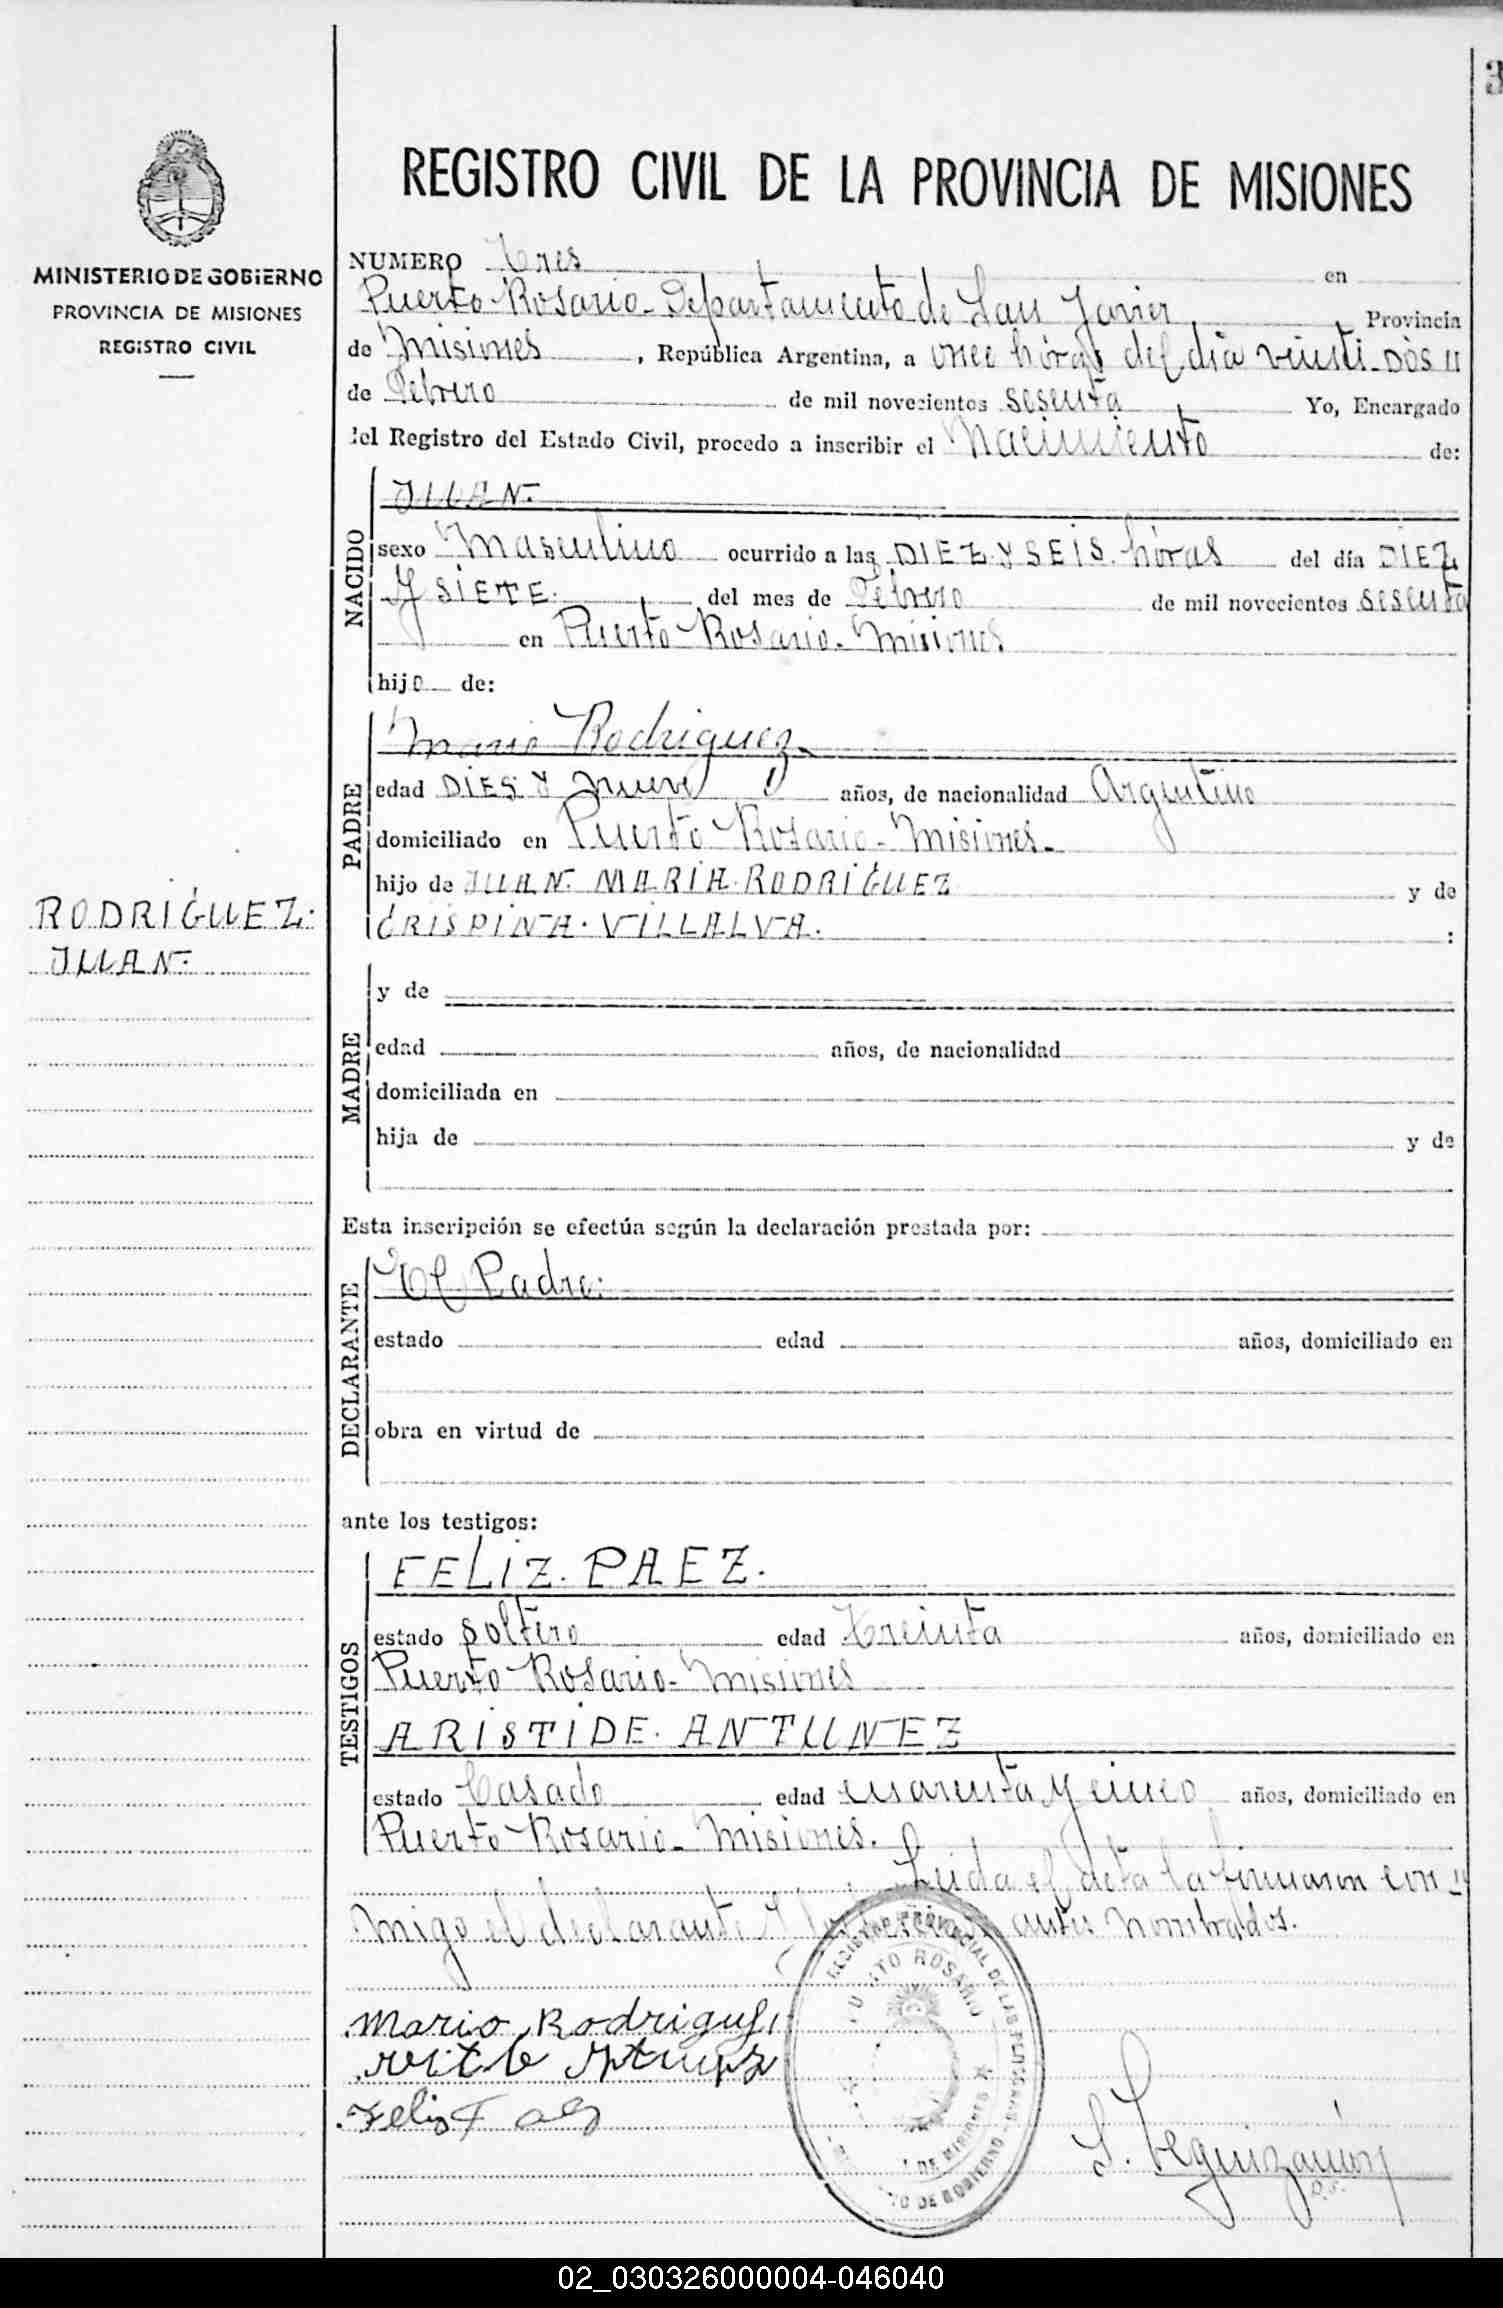 3
REGISTRO CIVIL DE LA PROVINCIA DE MISIONES
MINISTERIO DE GOBIERNO
PROVINCIA DE MISIONES
REGISTRO CIVIL
NUMERO Tres en
Puerto Rosario - Departamento de San Javier, Provincia
de Misiones, República Argentina, a once horas del día veinti-DOS
de Febrero de mil novecientos sesenta Yo, Encargado
del Registro del Estado Civil, procedo a inscribir el Nacimiento de:
NACIDO
JUAN.
sexo Masculino ocurrido a las DIEZ Y SEIS horas del día DIEZ
Y SIETE. del mes de Febrero de mil novecientos sesenta
en Puerto Rosario - Misiones
hijo de:
PADRE
Mario Rodriguez
edad DIES Y Nueve años, de nacionalidad Argentino
domiciliado en Puerto Rosario - Misiones -
hijo de JUAN. MARIA. RODRIGUEZ y de
CRISPINA. VILLALVA. :
RODRIGUEZ.
JUAN.
MADRE
y de
edad años, de nacionalidad
domiciliada en
hija de y de
Esta inscripción se efectúa según la declaración prestada por:
DECLARANTE
El Padre:
estado edad años, domiciliado en
obra en virtud de
ante los testigos:
TESTIGOS
FELIZ. PAEZ.
estado soltero edad Treinta años, domiciliado en
Puerto Rosario - Misiones
ARISTIDE. ANTUNEZ
estado Casado edad cuarenta y cinco años, domiciliado en
Puerto Rosario - Misiones.
Leida el acta la firmaron con
migo el declarante antes nombrados.
Mario Rodrigues
Feliz
PROVINCIAL DE LAS PERSONAS
ROSARIO
DE MISIONES
DE GOBIERNO
S. Leguizamón
02_030326000004-046040